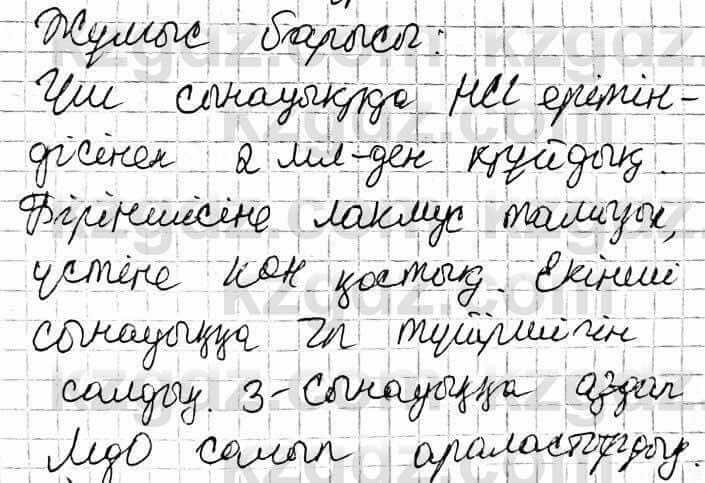 Жұмыс барысы:
Үш сынауыққа HCl ерітін-
дісінен 2 мл-ден құйдық.
Біріншісіне лакмус тамызып,
үстіне КОН қостық. Екінші
сынауыққа Zn түйіршігін
салдық. 3-сынауыққа аздап
MgO салып араластырдық.